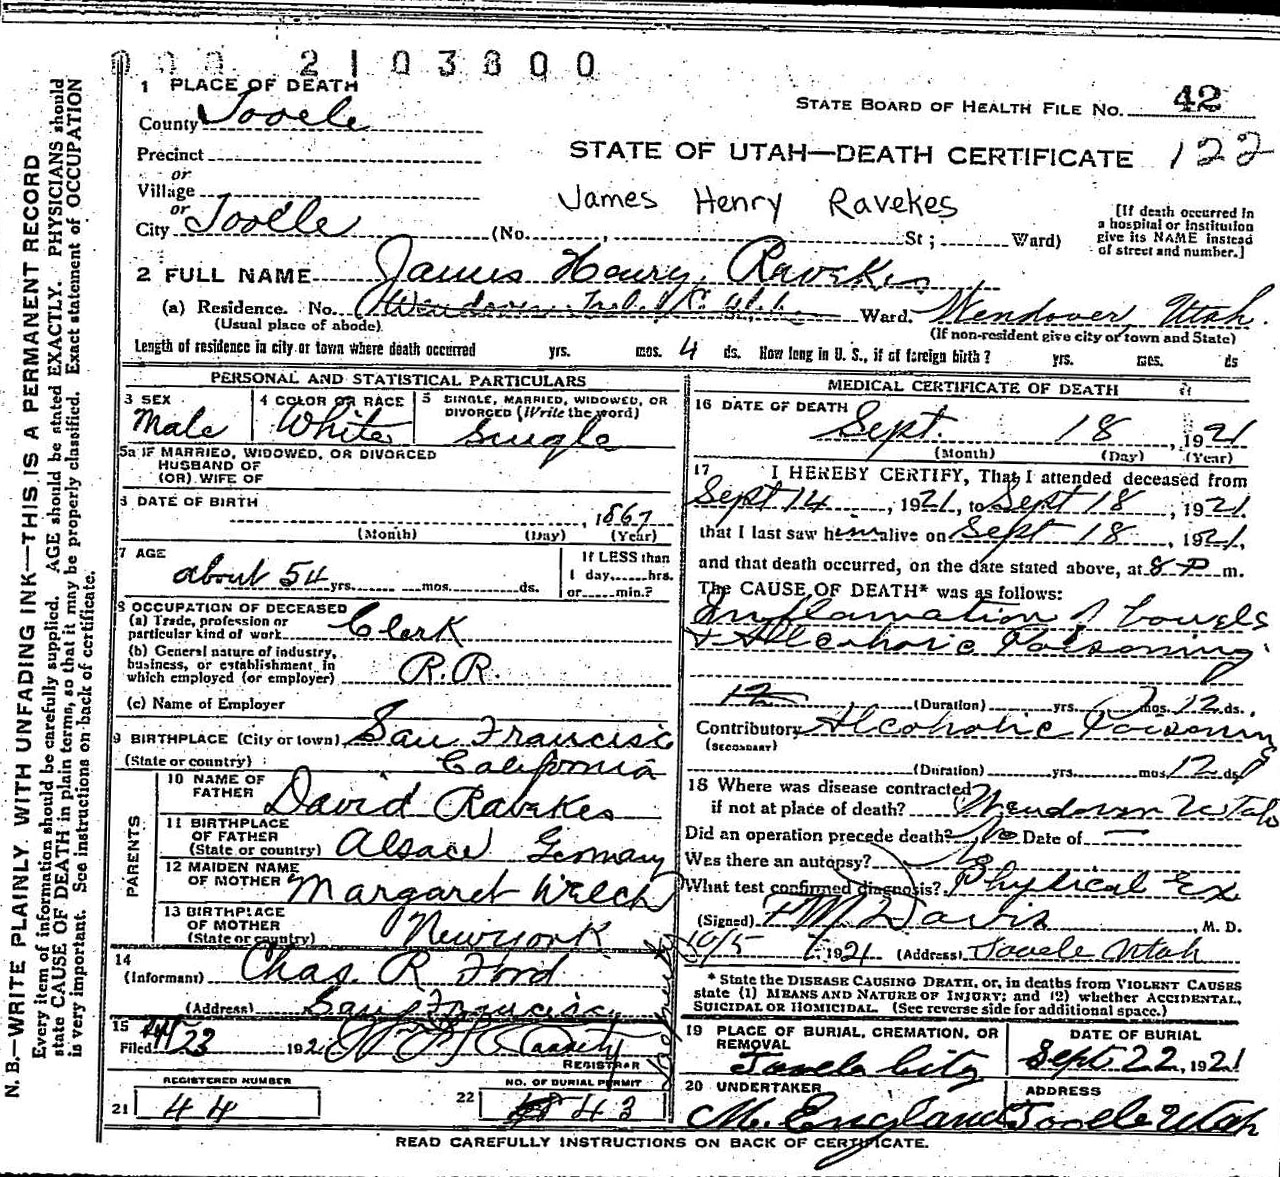 000 2103800
1 PLACE OF DEATH
STATE BOARD OF HEALTH FILE NO. 42
County Tooele
122
Precinct
STATE OF UTAH—DEATH CERTIFICATE
or
Village
James Henry Ravekes
or
City Tooele (No. , St; Ward)
[If death occurred in
a hospital or institution
give its NAME instead
of street and number.]
2 FULL NAME James Henry Ravekes
(a) Residence. No. Wendover Ward. Wendover, Utah.
(Usual place of abode) (If non-resident give city or town and State)
Length of residence in city or town where death occurred yrs. mos. 4 ds. How long in U. S., if of foreign birth? yrs. mos. ds
PERSONAL AND STATISTICAL PARTICULARS
3 SEX Male
4 COLOR OR RACE White
5 SINGLE, MARRIED, WIDOWED, OR
DIVORCED (Write the word)
Single
5a IF MARRIED, WIDOWED, OR DIVORCED
HUSBAND OF
(OR) WIFE OF
6 DATE OF BIRTH
, 1867
(Month) (Day) (Year)
7 AGE
about 54 yrs. mos. ds.
If LESS than
1 day, hrs.
or min.?
8 OCCUPATION OF DECEASED
(a) Trade, profession or
particular kind of work Clerk
(b) General nature of industry,
business, or establishment in
which employed (or employer) R.R.
(c) Name of Employer
9 BIRTHPLACE (City or town) San Francisco
(State or country) California
PARENTS
10 NAME OF
FATHER David Ravekes
11 BIRTHPLACE
OF FATHER
(State or country) Alsace Germany
12 MAIDEN NAME
OF MOTHER Margaret Welch
13 BIRTHPLACE
OF MOTHER
(State or country) New york
14
(Informant) Chas. R Ford
(Address) San Francisco
15
Filed 23 192
REGISTRAR
REGISTERED NUMBER
21 44
NO. OF BURIAL PERMIT
22 43
MEDICAL CERTIFICATE OF DEATH
16 DATE OF DEATH
Sept. 18, 1921
(Month) (Day) (Year)
17 I HEREBY CERTIFY, That I attended deceased from
Sept 14, 1921, to Sept 18, 1921
that I last saw him alive on Sept 18, 1921,
and that death occurred, on the date stated above, at 8 P m.
The CAUSE OF DEATH* was as follows:
Inflamation of bowels
& Alcoholic Poisoning
12 (Duration) yrs. mos. 12 ds.
Contributory Alcoholic Poisoning
(SECONDARY)
(Duration) yrs. mos. 12 ds
18 Where was disease contracted
if not at place of death? Wendover Utah
Did an operation precede death? No Date of —
Was there an autopsy? No
What test confirmed diagnosis? Physical Ex
(Signed) F.M. Davis, M. D.
10/5 1921 (Address) Tooele Utah
* State the DISEASE CAUSING DEATH, or, in deaths from VIOLENT CAUSES
state (1) MEANS AND NATURE OF INJURY; and (2) whether ACCIDENTAL,
SUICIDAL OR HOMICIDAL. (See reverse side for additional space.)
19 PLACE OF BURIAL, CREMATION, OR
REMOVAL
Tooele City
DATE OF BURIAL
Sept. 22, 1921
20 UNDERTAKER
M. England
ADDRESS
Tooele Utah
READ CAREFULLY INSTRUCTIONS ON BACK OF CERTIFICATE.
N. B.—WRITE PLAINLY, WITH UNFADING INK—THIS IS A PERMANENT RECORD
Every item of information should be carefully supplied. AGE should be stated EXACTLY. PHYSICIANS should
state CAUSE OF DEATH in plain terms, so that it may be properly classified. Exact statement of OCCUPATION
is very important. See instructions on back of certificate.